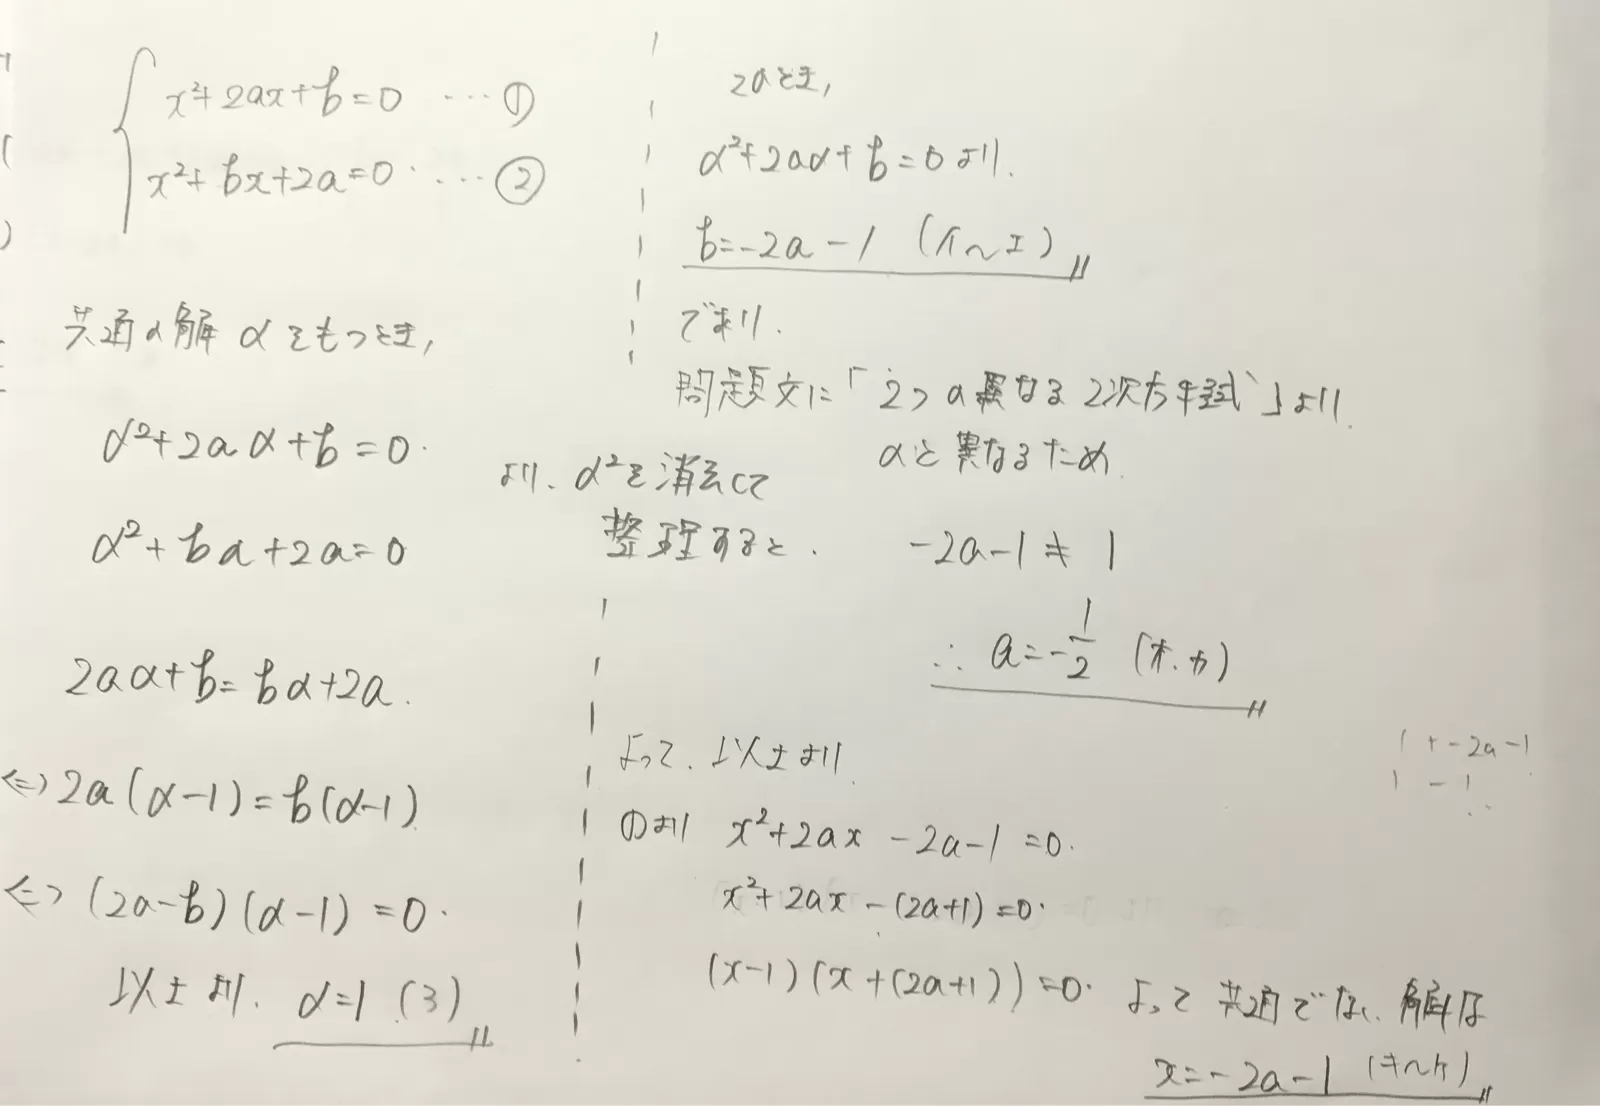 x²+2ax+b=0 …①
x²+bx+2a=0 ……②
共通の解 αをもつとき,
α²+2aα+b=0.
α²+ba+2a=0
より、α²を消去して
整理すると、
2aα+b=bα+2a.
⇔2a(α-1)=b(α-1)
⇔(2a-b)(α-1)=0.
以上より、α=1 (ア)
このとき,
α²+2aα+b=0より.
b=-2a-1 (イ〜エ)
であり.
問題文に「2つの異なる2次方程式」より
αと異なるため
-2a-1≠1
∴ a=-1/2 (オ.カ)
よって、以上より
①より x²+2ax-2a-1=0.
x²+2ax-(2a+1)=0.
(x-1)(x+(2a+1))=0. よって共通でない解は
x=-2a-1 (キ〜ケ)
1+-2a-1
1-1